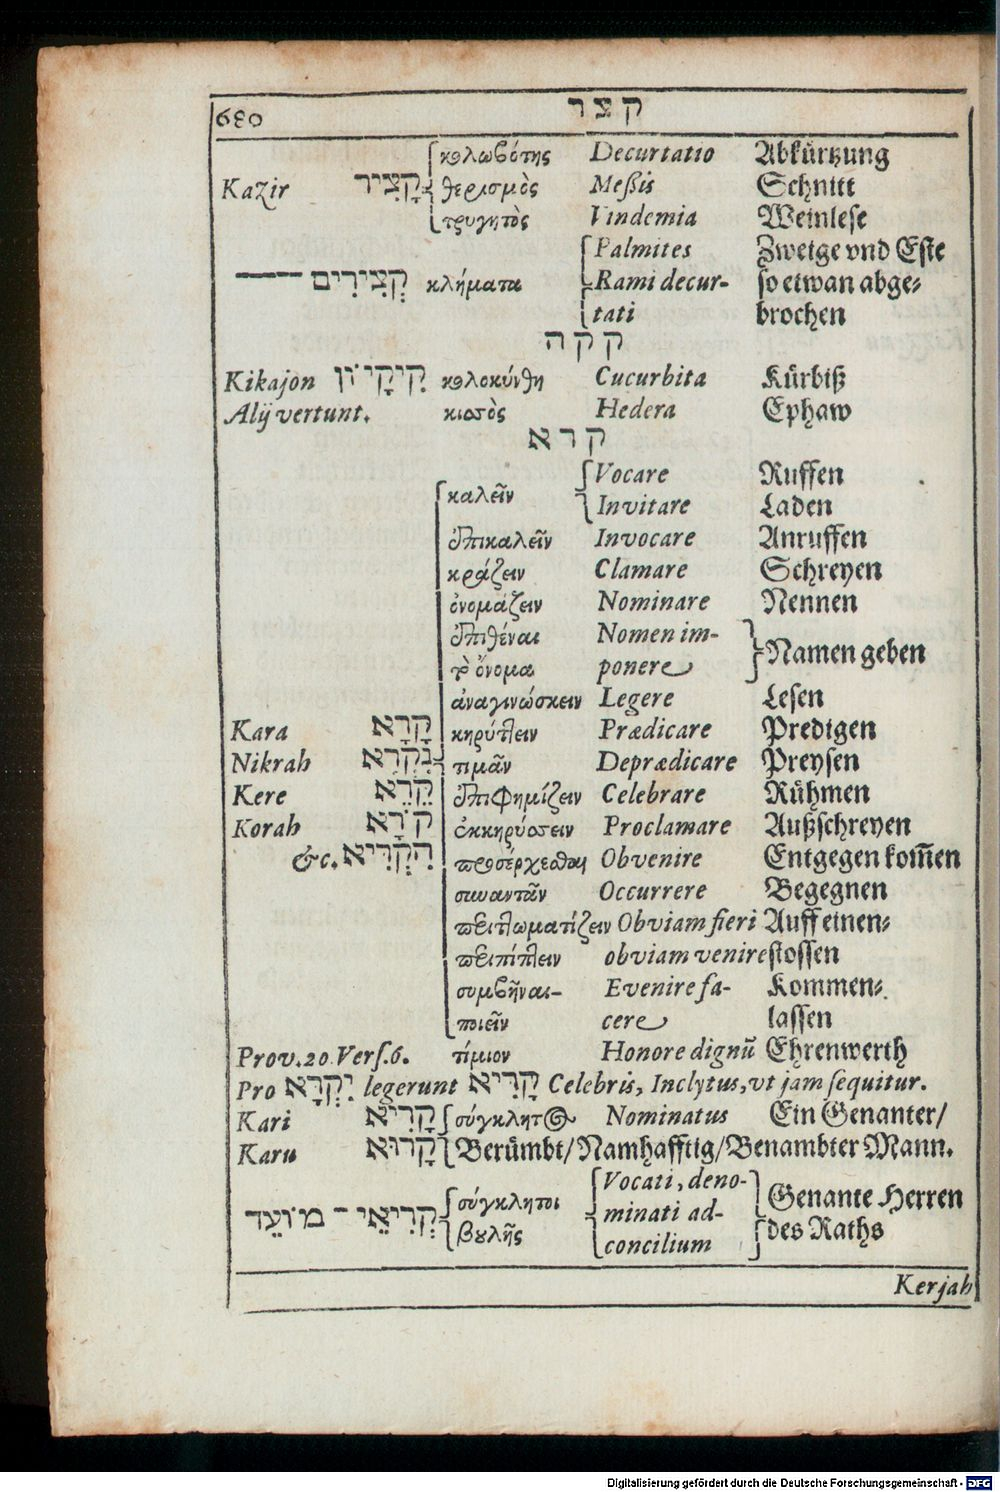 680 קצר
κολωβότης Decurtatio Abkürtzung
Kazir קָצִיר θερισμὸς Meßis Schnitt
τρυγητὸς Vindemia Weinlese
Palmites Zweige vnd Este
קְצִירִים κλήματα Rami decur- so etwan abge-
tati brochen
קקה
Kikajon קִיקָיוֹן κολοκύνθη Cucurbita Kürbiß
Alij vertunt. κισσὸς Hedera Ephaw
קרא
Vocare Ruffen
καλεῖν
Invitare Laden
ἐπικαλεῖν Invocare Anruffen
κράζειν Clamare Schreyen
ὀνομάζειν Nominare Nennen
ἐπιθέναι Nomen im-
Namen geben
τὸ ὄνομα ponere
ἀναγινώσκειν Legere Lesen
Kara קָרָא κηρύττειν Prædicare Predigen
Nikrah נִקְרָא τιμᾶν Deprædicare Preysen
Kere קֵרֵא ἐπιφημίζειν Celebrare Rühmen
Korah קֹרָא ἐκκηρύσσειν Proclamare Außschreyen
&c. הִקְרִיא προσέρχεσθαι Obvenire Entgegen kom̄en
συναντᾶν Occurrere Begegnen
περιπτωματίζειν Obviam fieri Auff einen-
περιπίπτειν obviam venire stossen
συμβῆναι- Evenire fa- Kommen-
ποιεῖν cere lassen
Prov. 20. Vers. 6. τίμιον Honore dignũ Ehrenwerth
Pro יִקְרָא legerunt קָרִיא Celebris, Inclytus, vt jam sequitur.
Kari קָרִיא σύγκλητος Nominatus Ein Genanter/
Karu קָרוּא Berümbt/Namhafftig/Benambter Mann.
Vocati, deno-
σύγκλητοι Genante Herren
קְרִיאֵי־מוֹעֵד minati ad-
βουλῆς des Raths
concilium
Kerjah
Digitalisierung gefördert durch die Deutsche Forschungsgemeinschaft - DFG